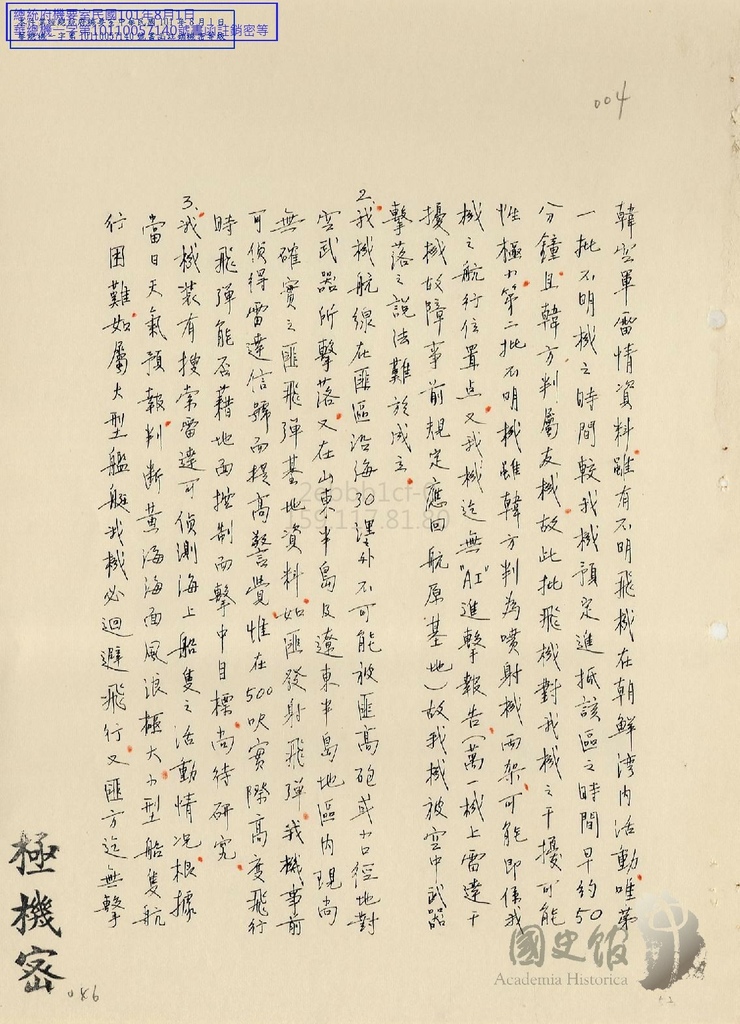 總統府機要室民國101年8月1日
華總機一字第10110057140號書函註銷密等
004
韓空軍雷情資料雖有不明飛機在朝鮮湾內活動唯第
一批不明機之時間較我機預定進抵該區之時間早約50
分鐘且韓方判屬友機故此批飛機對我機之干擾可能
性極小第二批不明機雖韓方判為噴射機両架可能即係我
機之航行位置点又我機迄無"AI"進擊報告(萬一機上雷達干
擾機故障事前規定應回航原基地)故我機被空中武器
擊落之說法難於成立
2.我機航線在匪區沿海30浬外不可能被匪高砲或小口徑地對
空武器所擊落又在山東半島及遼東半島地區內現尚
無確實之匪飛彈基地資料如匪發射飛彈我機事前
可偵得雷達信號而提高警覺惟在500呎實際高度飛行
時飛彈能否藉地面控制而擊中目標尚待研究
3.我機裝有搜索雷達可偵測海上船隻之活動情况根據
當日天氣預報判断黄海海面風浪極大小型船隻航
行困難如屬大型艦艇我機必迴避飛行又匪方迄無擊
極機密
086
國史館
Academia Historica
159.117.81.80